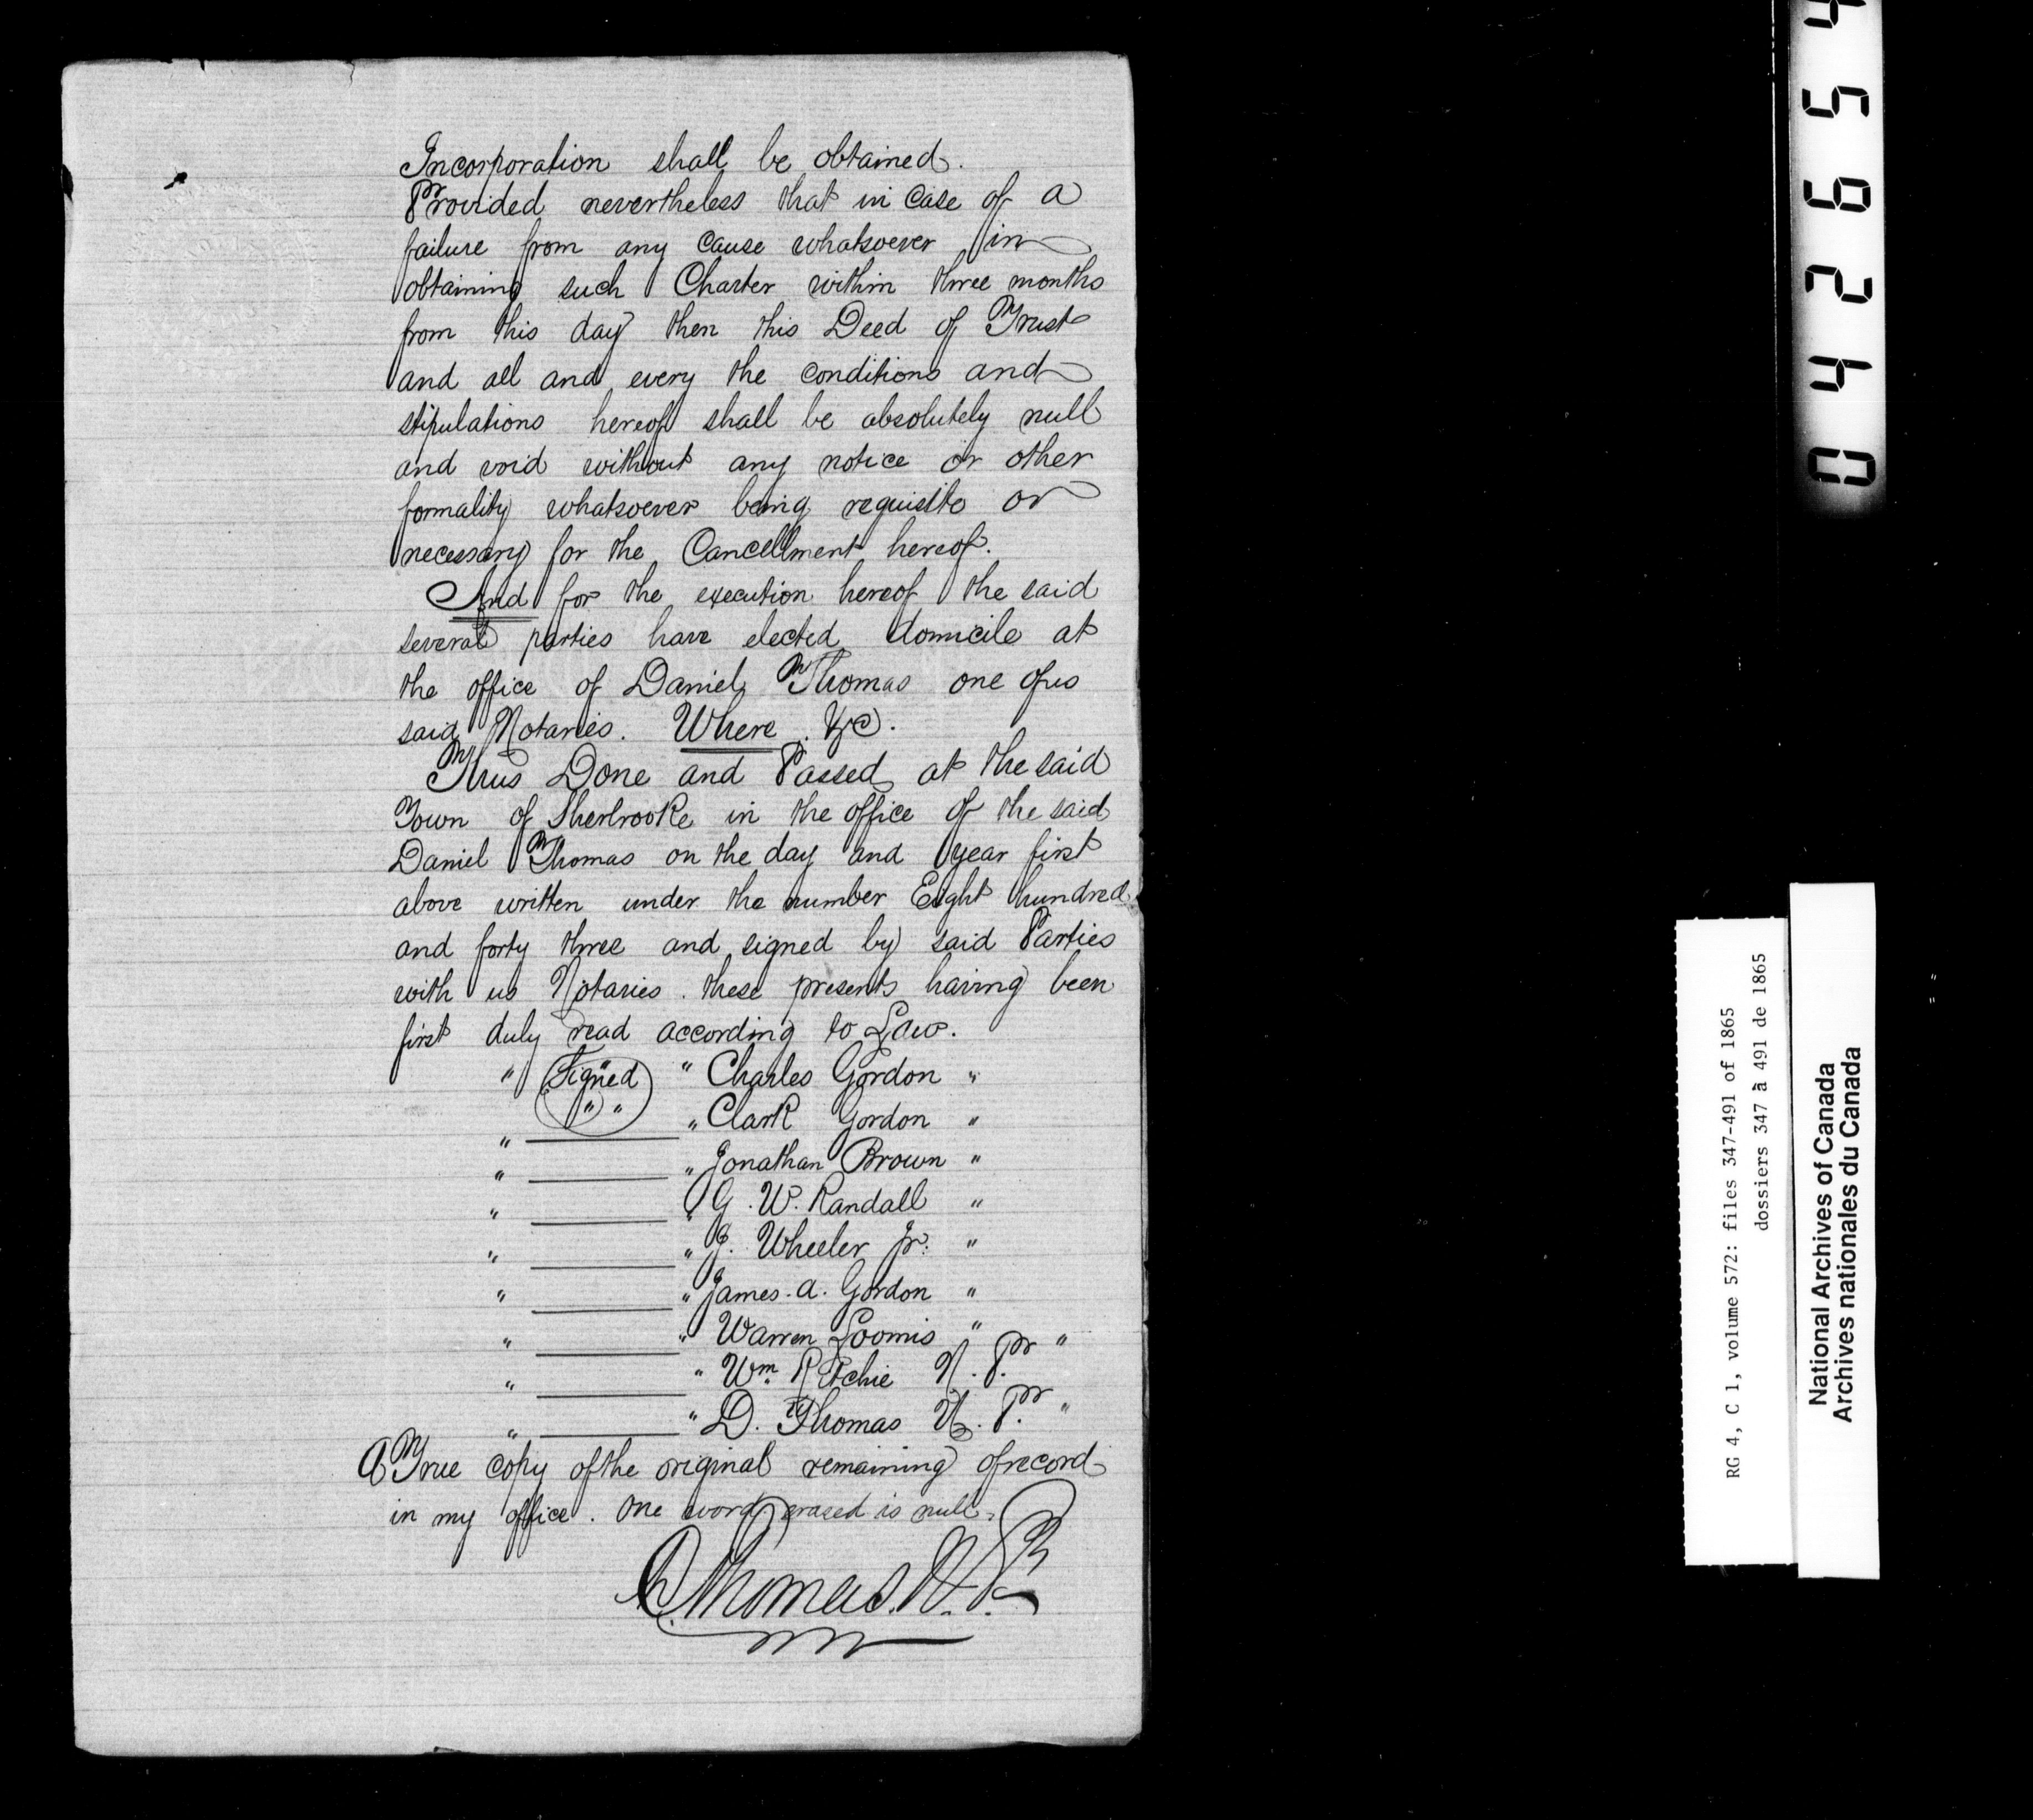 Incorporation shall be obtained.
Provided nevertheless that in case of a
failure from any cause whatsoever in
obtaining such Charter within three months
from this day then this Deed of Trust
and all and every the conditions and
stipulations hereof shall be absolutely null
and void without any notice or other
formality whatsoever being requisite or
necessary for the Cancellment hereof.
And for the execution hereof the said
several parties have elected domicile at
the office of Daniel Thomas one of us
said Notaries. Where &c.
Thus Done and Passed at the said
Town of Sherbrooke in the office of the said
Daniel Thomas on the day and year first
above written under the number Eight hundred
and forty three and signed by said Parties
with us Notaries. these presents having been
first duly read according to Law.
" (Signed) " Charles Gordon "
" " " Clark Gordon "
" " Jonathan Brown "
" " G. W. Randall "
" " J. Wheeler Jr. "
" " James. A. Gordon "
" " Warren Loomis "
" " Wm. Ritchie N. P. "
" " D. Thomas N. P. "
A True copy of the original remaining of record
in my office. One word erased is null.
D Thomas. N. P.
042654
RG 4, C 1, volume 572: files 347-491 of 1865
dossiers 347 à 491 de 1865
National Archives of Canada
Archives nationales du Canada